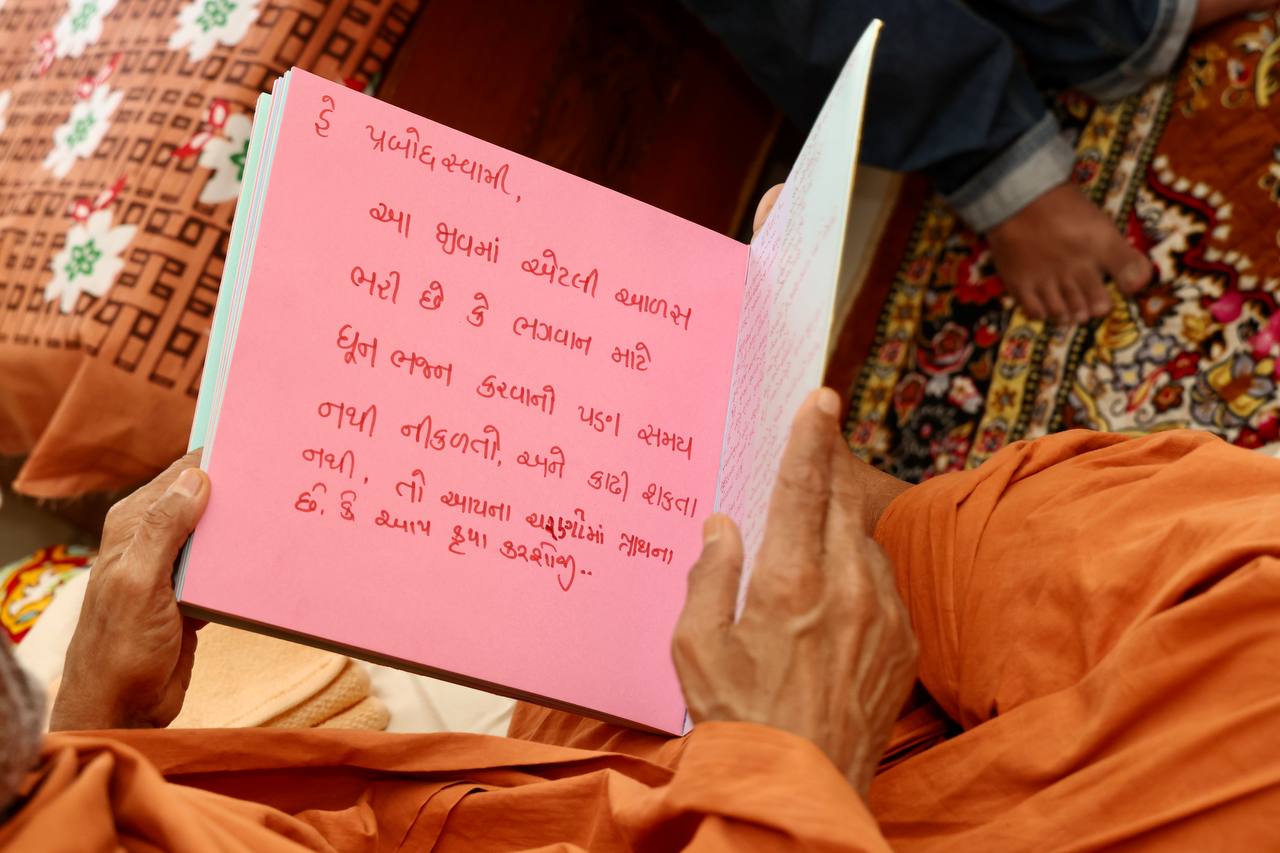 હે પ્રબોધસ્વામી,
આ જીવમાં એટલી આળસ
ભરી છે કે ભગવાન માટે
ધૂન ભજન કરવાનો પણ સમય
નથી નીકળતો, અને કાઢી શકતા
નથી, તો આપના ચરણોમાં પ્રાર્થના
છે, કે આપ કૃપા કરશોજી..